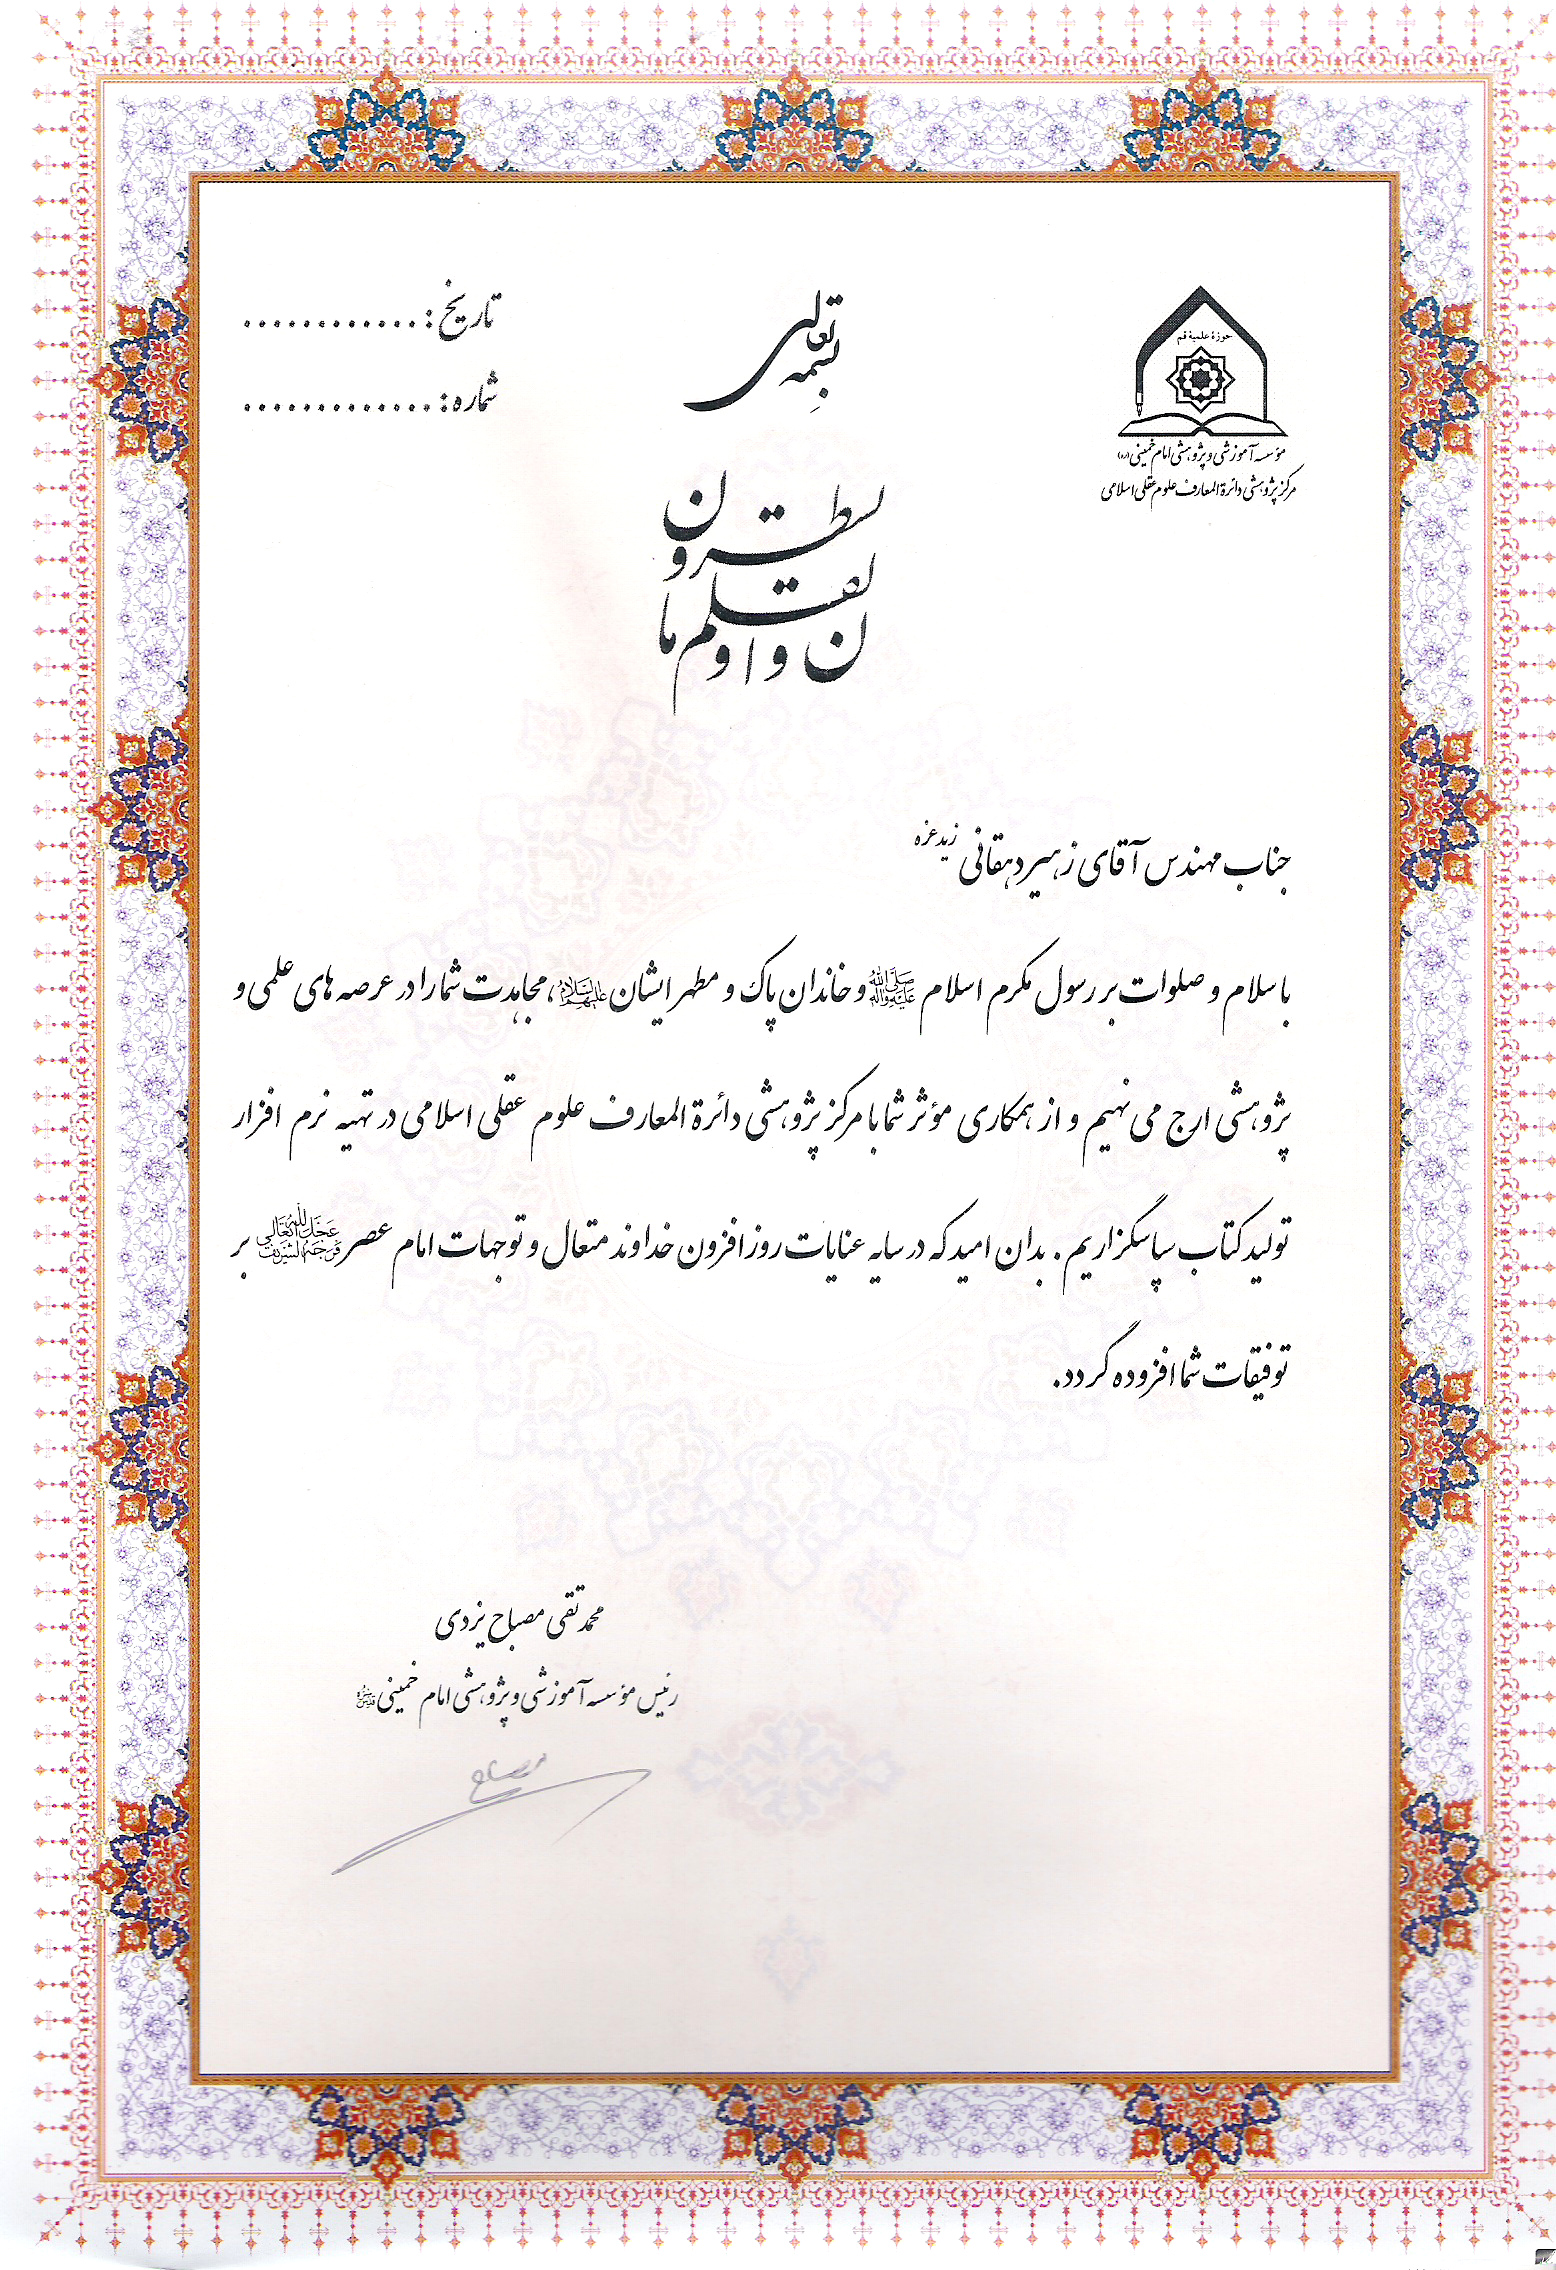 بسمه تعالی
تاریخ : ............
شماره : .............
حوزهٔ علمیهٔ قم
مؤسسه آموزشی و پژوهشی امام خمینی (ره)
مرکز پژوهشی دائرة المعارف علوم عقلی اسلامی
ن و القلم و ما یسطرون
جناب مهندس آقای زهیر دهقانی زید عزه
با سلام و صلوات بر رسول مکرم اسلام صلی الله علیه وآله و خاندان پاک و مطهر ایشان علیهم السلام، مجاهدت شما را در عرصه های علمی و
پژوهشی ارج می نهیم و از همکاری مؤثر شما با مرکز پژوهشی دائرة المعارف علوم عقلی اسلامی در تهیه نرم افزار
تولید کتاب سپاسگزاریم . بدان امید که در سایه عنایات روز افزون خداوند متعال و توجهات امام عصر عجل الله تعالی فرجه الشریف بر
توفیقات شما افزوده گردد.
محمد تقی مصباح یزدی
رئیس مؤسسه آموزشی و پژوهشی امام خمینی
مصباح